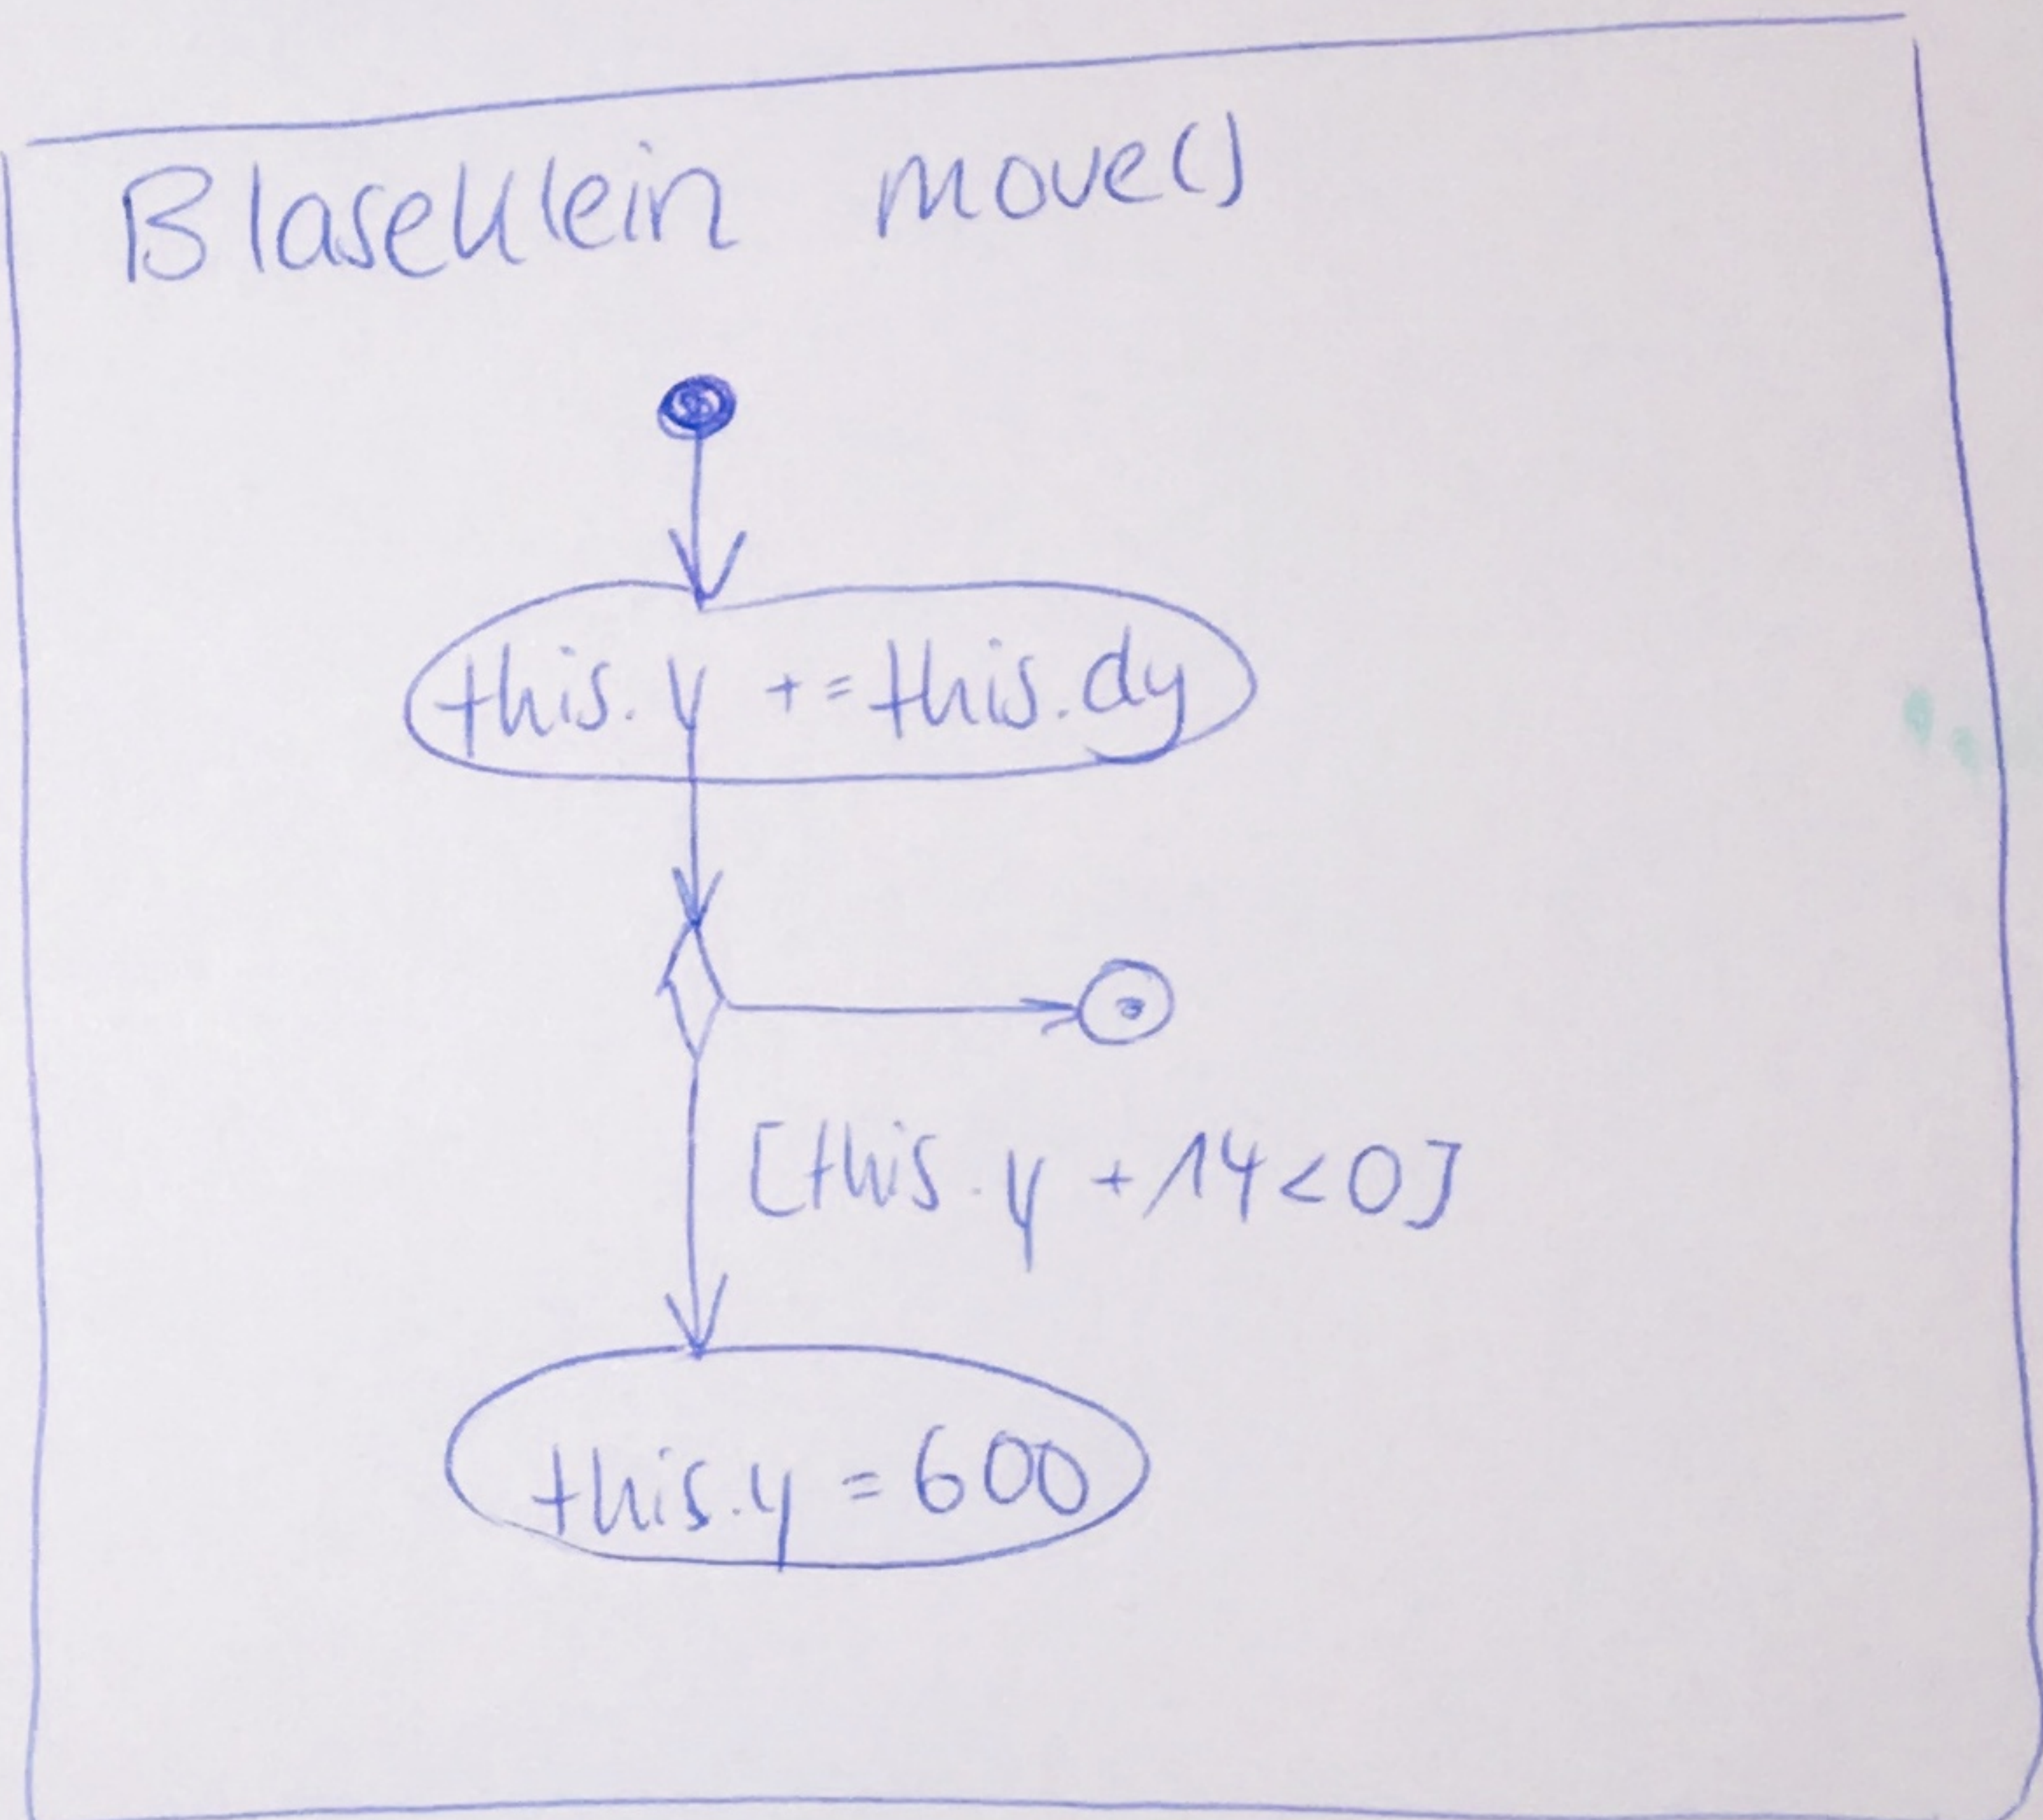 BlaseKlein move()
this.y += this.dy
[this.y + 14 < 0]
this.y = 600